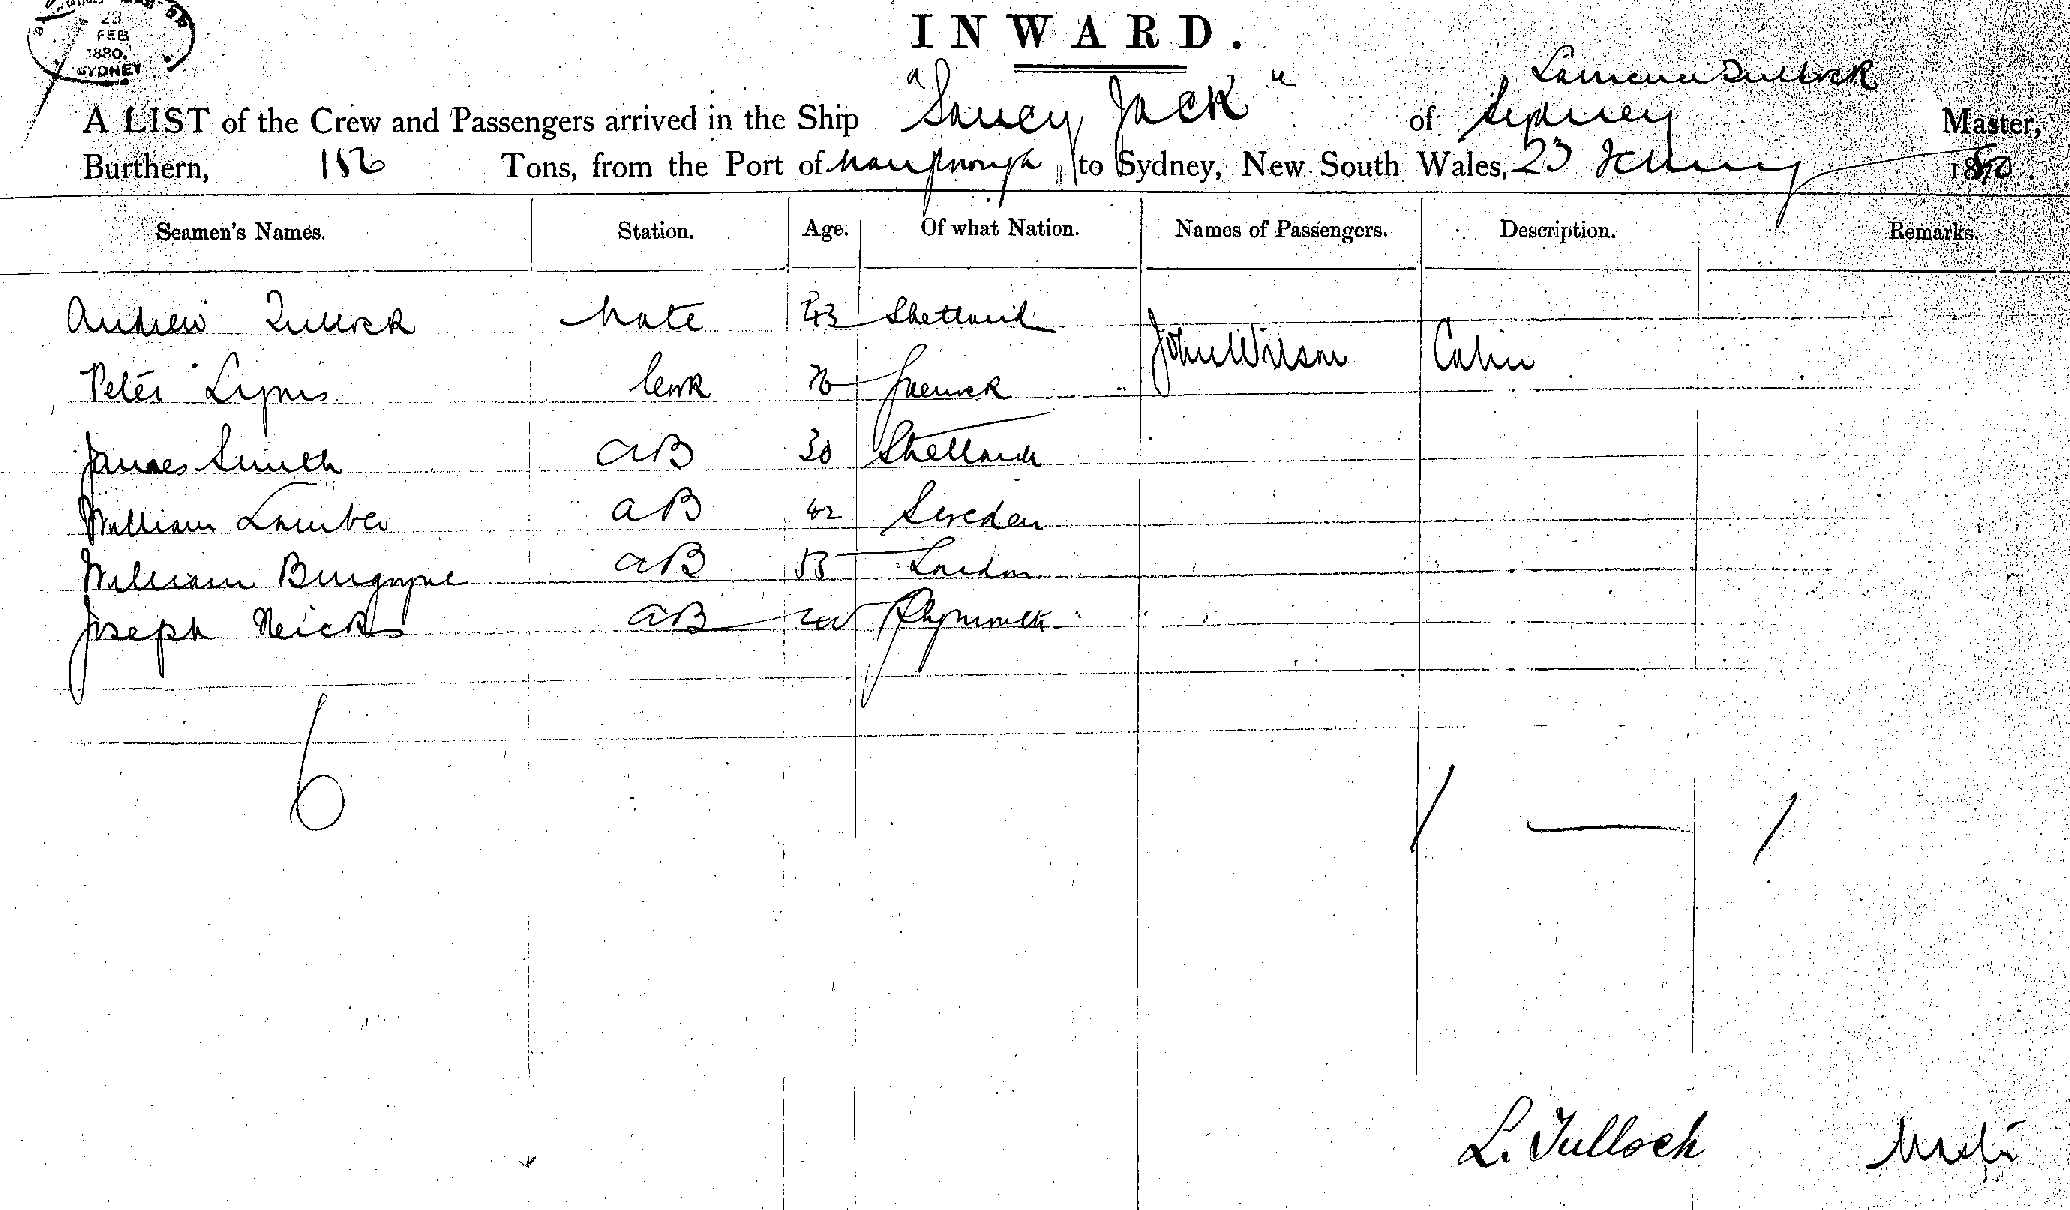 23
FEB
1880.
SYDNEY
INWARD.
Lawrence Tulloch
A LIST of the Crew and Passengers arrived in the Ship "Saucy Jack" of Sydney Master,
Burthern, 156 Tons, from the Port of to Sydney, New South Wales, 23 1880.
Seamen's Names. Station. Age. Of what Nation. Names of Passengers. Description. Remarks.
Andrew Tullock Mate 43 Shetland
John Wilson Cabin
Peter Cook
James Smith AB 30 Shetland
William AB 42 Sweden
William Burgoyne AB London
Joseph AB Plymouth
6 1 — 1
L. Tulloch Master